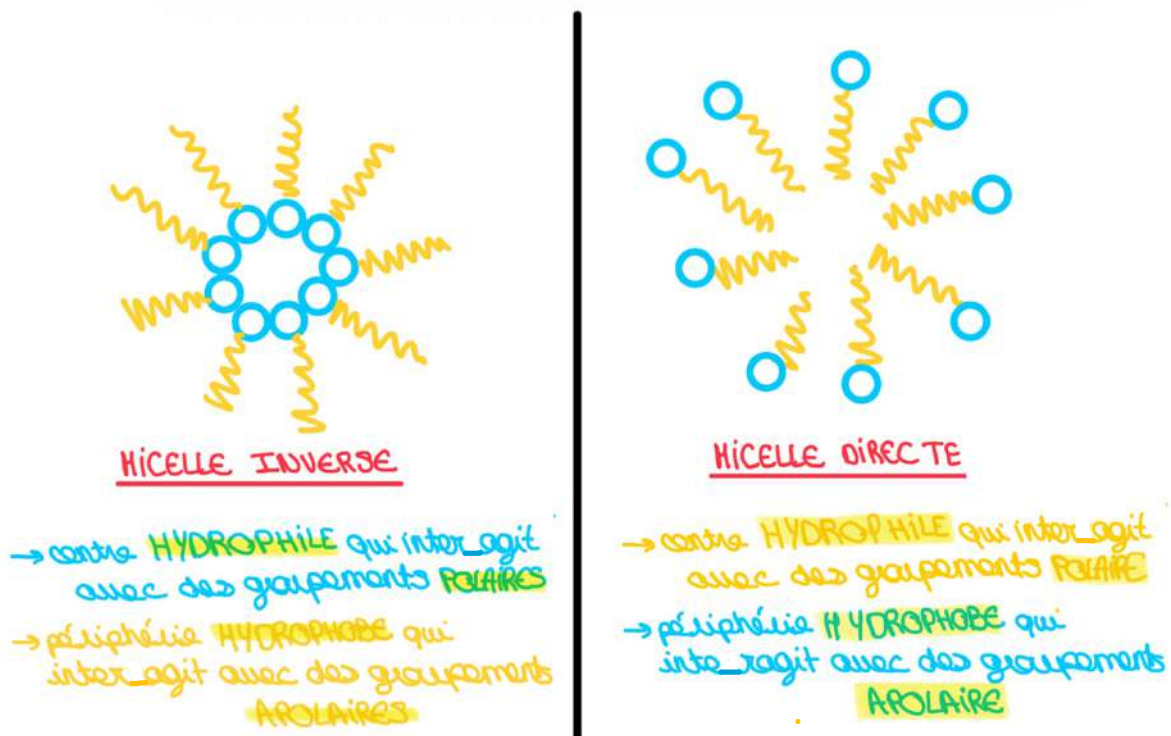 MICELLE INVERSE
→ centre HYDROPHILE qui inter_agit
avec des groupements POLAIRES
→ périphérie HYDROPHOBE qui
inter_agit avec des groupements
APOLAIRES
MICELLE DIRECTE
→ centre HYDROPHILE qui inter_agit
avec des groupements POLAIRE
→ périphérie HYDROPHOBE qui
inte_ragit avec des groupements
APOLAIRE